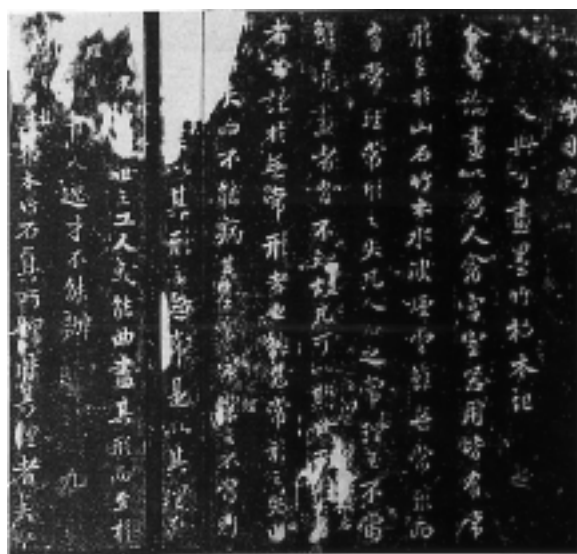 淨因院
文與可畫墨竹枯木記
余嘗論畫以為人禽宮室器用皆有常
形至於山石竹木水波煙雲雖無常形而
有常理常形之失人皆知之常理之不當
雖曉畫者有不知故凡可以欺世
者必託於無常形者也雖然常形之失止
失而不能病其全若常理之不當則
以其形之無常是以其理不
世之工人或能曲盡其形而至於
人逸才不能辨
木竹石真所謂得其理者矣